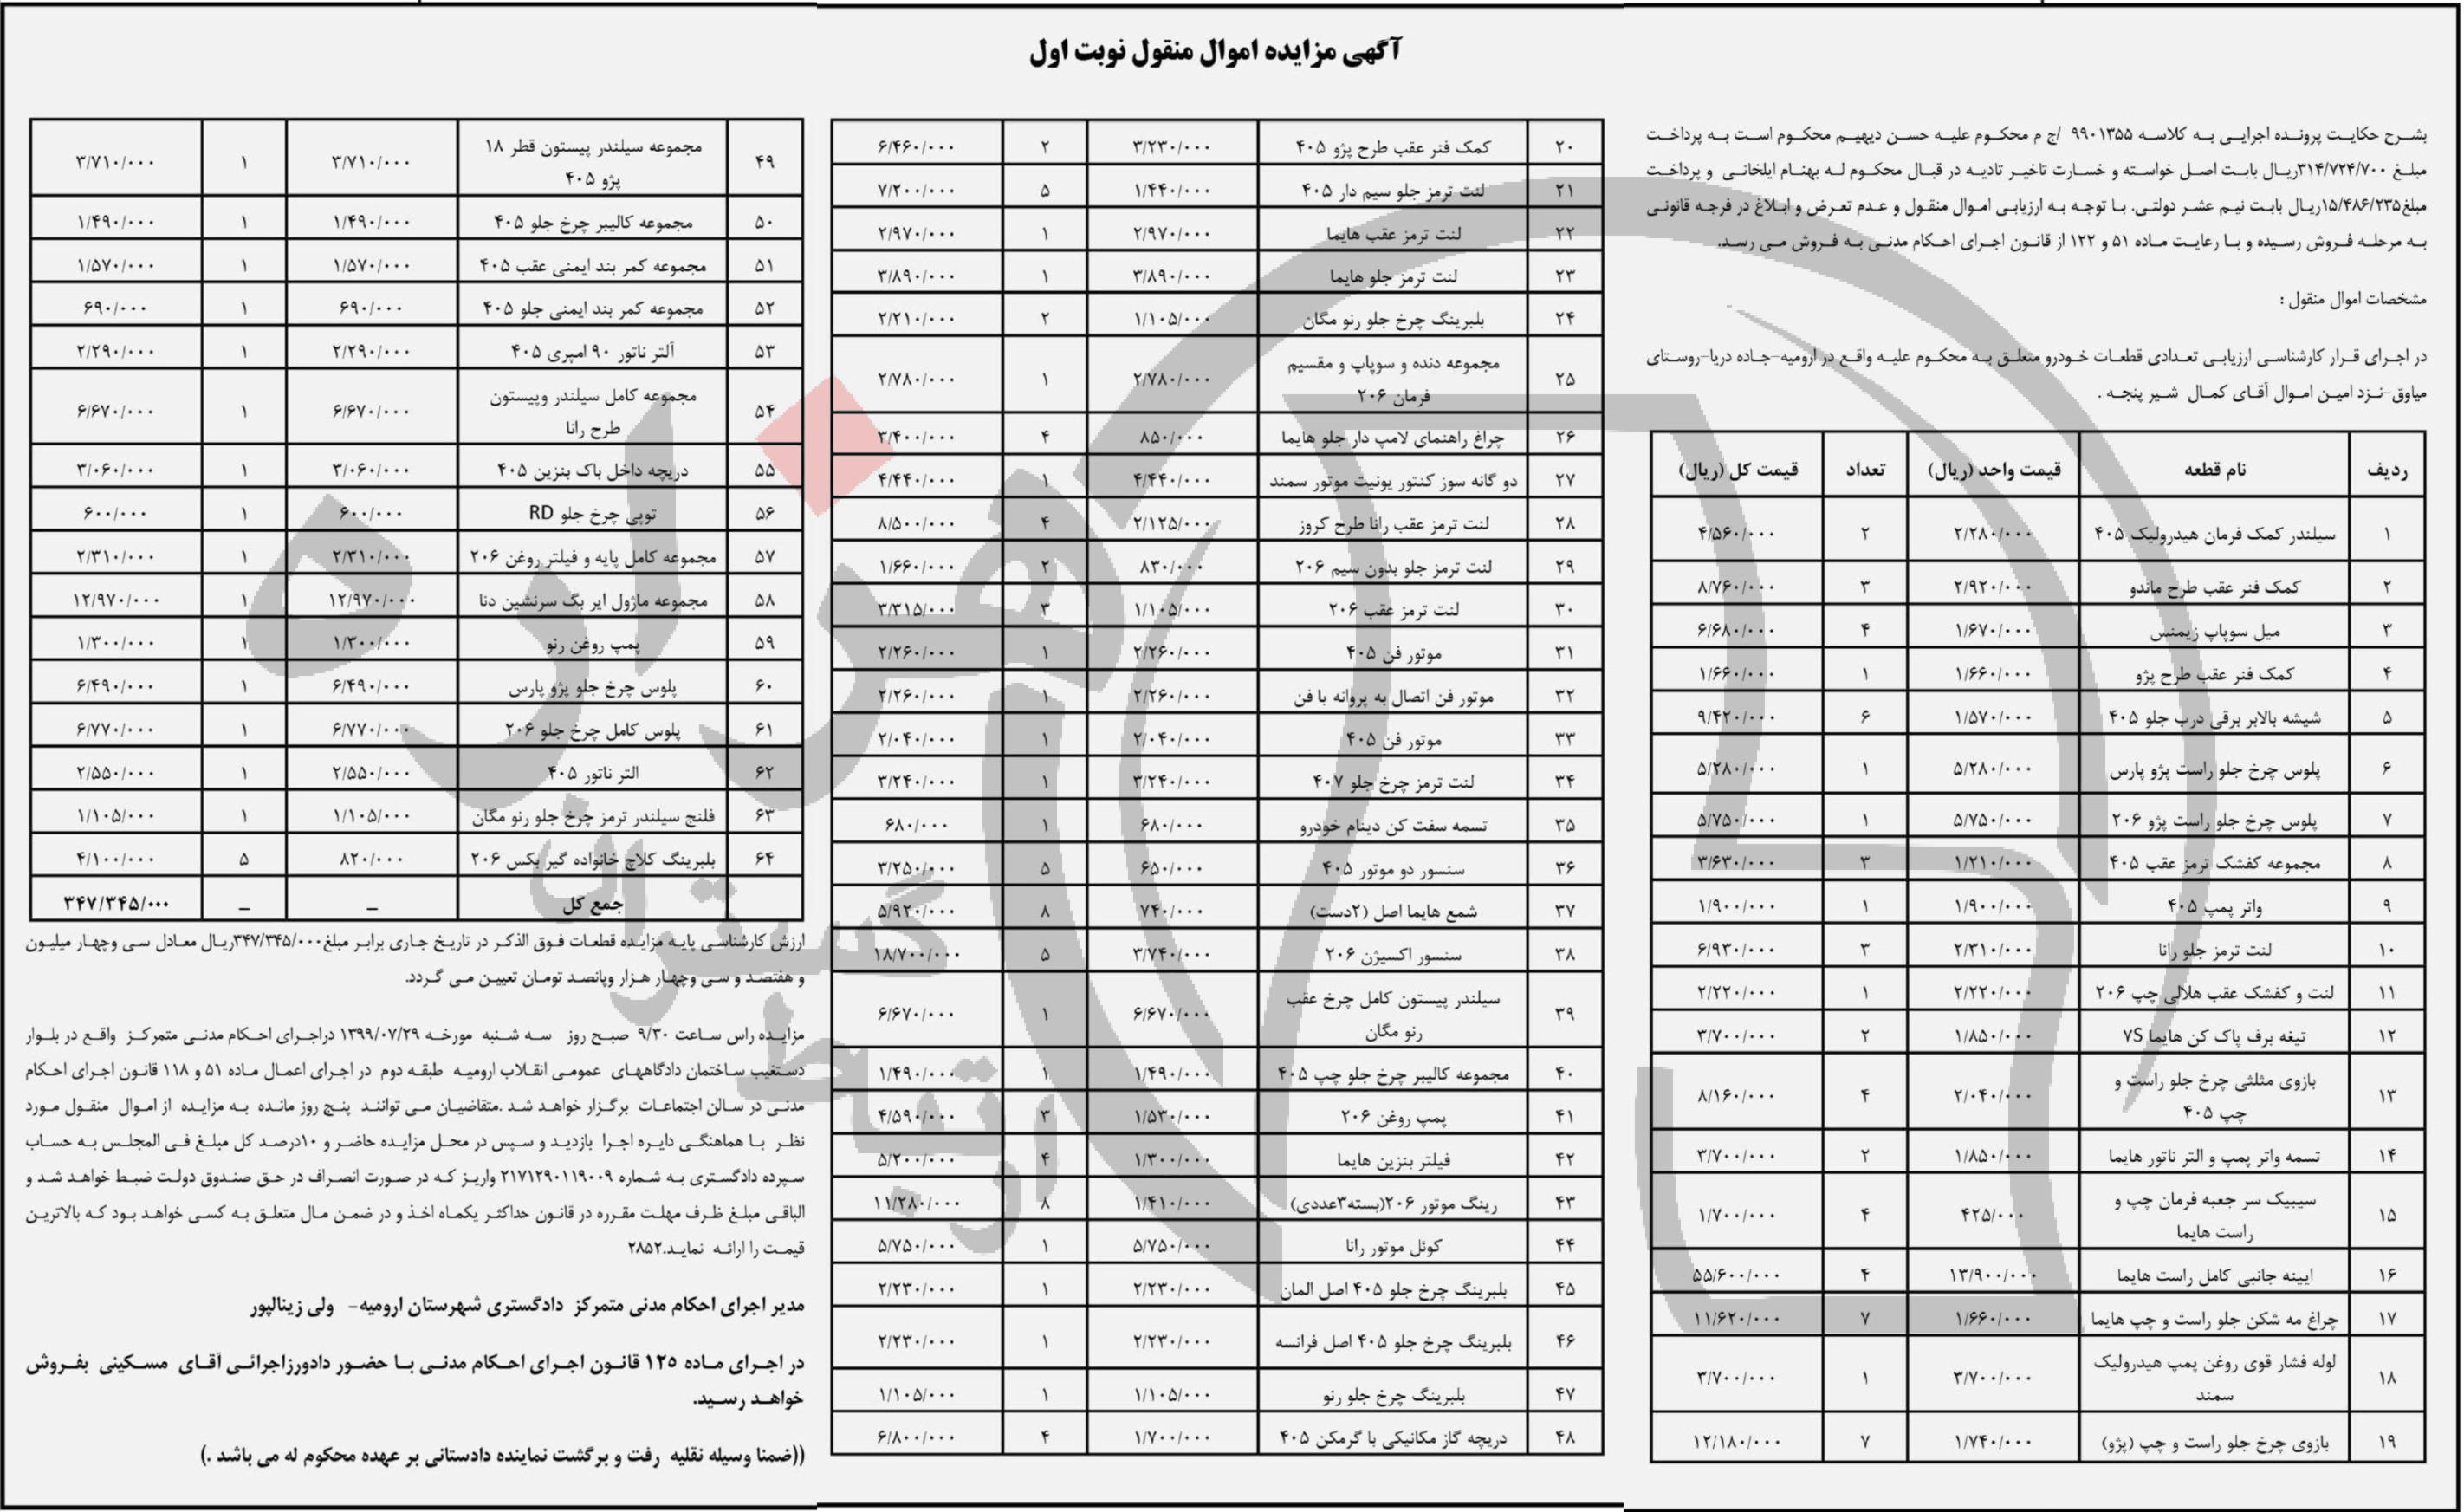 آگهی مزایده اموال منقول نوبت اول
بشرح حکایت پرونده اجرایی به کلاسه ۹۹۰۱۳۵۵ /ج م محکوم علیه حسن دیهیم محکوم است به پرداخت
مبلغ ۳۱۴/۷۲۴/۷۰۰ریال بابت اصل خواسته و خسارت تاخیر تادیه در قبال محکوم له بهنام ایلخانی و پرداخت
مبلغ۱۵/۴۸۶/۲۳۵ریال بابت نیم عشر دولتی. با توجه به ارزیابی اموال منقول و عدم تعرض و ابلاغ در فرجه قانونی
به مرحله فروش رسیده و با رعایت ماده ۵۱ و ۱۲۲ از قانون اجرای احکام مدنی به فروش می رسد.
مشخصات اموال منقول :
در اجرای قرار کارشناسی ارزیابی تعدادی قطعات خودرو متعلق به محکوم علیه واقع در ارومیه-جاده دریا-روستای
میاوق-نزد امین اموال آقای کمال شیر پنجه .
ردیف نام قطعه قیمت واحد (ریال) تعداد قیمت کل (ریال)
۱ سیلندر کمک فرمان هیدرولیک ۴۰۵ ۲/۲۸۰/۰۰۰ ۲ ۴/۵۶۰/۰۰۰
۲ کمک فنر عقب طرح ماندو ۲/۹۲۰/۰۰۰ ۳ ۸/۷۶۰/۰۰۰
۳ میل سوپاپ زیمنس ۱/۶۷۰/۰۰۰ ۴ ۶/۶۸۰/۰۰۰
۴ کمک فنر عقب طرح پژو ۱/۶۶۰/۰۰۰ ۱ ۱/۶۶۰/۰۰۰
۵ شیشه بالابر برقی درب جلو ۴۰۵ ۱/۵۷۰/۰۰۰ ۶ ۹/۴۲۰/۰۰۰
۶ پلوس چرخ جلو راست پژو پارس ۵/۲۸۰/۰۰۰ ۱ ۵/۲۸۰/۰۰۰
۷ پلوس چرخ جلو راست پژو ۲۰۶ ۵/۷۵۰/۰۰۰ ۱ ۵/۷۵۰/۰۰۰
۸ مجموعه کفشک ترمز عقب ۴۰۵ ۱/۲۱۰/۰۰۰ ۳ ۳/۶۳۰/۰۰۰
۹ واتر پمپ ۴۰۵ ۱/۹۰۰/۰۰۰ ۱ ۱/۹۰۰/۰۰۰
۱۰ لنت ترمز جلو رانا ۲/۳۱۰/۰۰۰ ۳ ۶/۹۳۰/۰۰۰
۱۱ لنت و کفشک عقب هلالی چپ ۲۰۶ ۲/۲۲۰/۰۰۰ ۱ ۲/۲۲۰/۰۰۰
۱۲ تیغه برف پاک کن هایما ۷S ۱/۸۵۰/۰۰۰ ۲ ۳/۷۰۰/۰۰۰
۱۳ بازوی مثلثی چرخ جلو راست و
چپ ۴۰۵ ۲/۰۴۰/۰۰۰ ۴ ۸/۱۶۰/۰۰۰
۱۴ تسمه واتر پمپ و التر ناتور هایما ۱/۸۵۰/۰۰۰ ۲ ۳/۷۰۰/۰۰۰
۱۵ سیبیک سر جعبه فرمان چپ و
راست هایما ۴۲۵/۰۰۰ ۴ ۱/۷۰۰/۰۰۰
۱۶ ایینه جانبی کامل راست هایما ۱۳/۹۰۰/۰۰۰ ۴ ۵۵/۶۰۰/۰۰۰
۱۷ چراغ مه شکن جلو راست و چپ هایما ۱/۶۶۰/۰۰۰ ۷ ۱۱/۶۲۰/۰۰۰
۱۸ لوله فشار قوی روغن پمپ هیدرولیک
سمند ۳/۷۰۰/۰۰۰ ۱ ۳/۷۰۰/۰۰۰
۱۹ بازوی چرخ جلو راست و چپ (پژو) ۱/۷۴۰/۰۰۰ ۷ ۱۲/۱۸۰/۰۰۰
۲۰ کمک فنر عقب طرح پژو ۴۰۵ ۳/۲۳۰/۰۰۰ ۲ ۶/۴۶۰/۰۰۰
۲۱ لنت ترمز جلو سیم دار ۴۰۵ ۱/۴۴۰/۰۰۰ ۵ ۷/۲۰۰/۰۰۰
۲۲ لنت ترمز عقب هایما ۲/۹۷۰/۰۰۰ ۱ ۲/۹۷۰/۰۰۰
۲۳ لنت ترمز جلو هایما ۳/۸۹۰/۰۰۰ ۱ ۳/۸۹۰/۰۰۰
۲۴ بلبرینگ چرخ جلو رنو مگان ۱/۱۰۵/۰۰۰ ۲ ۲/۲۱۰/۰۰۰
۲۵ مجموعه دنده و سوپاپ و مقسیم
فرمان ۲۰۶ ۲/۷۸۰/۰۰۰ ۱ ۲/۷۸۰/۰۰۰
۲۶ چراغ راهنمای لامپ دار جلو هایما ۸۵۰/۰۰۰ ۴ ۳/۴۰۰/۰۰۰
۲۷ دو گانه سوز کنتور یونیت موتور سمند ۴/۴۴۰/۰۰۰ ۱ ۴/۴۴۰/۰۰۰
۲۸ لنت ترمز عقب رانا طرح کروز ۲/۱۲۵/۰۰۰ ۴ ۸/۵۰۰/۰۰۰
۲۹ لنت ترمز جلو بدون سیم ۲۰۶ ۸۳۰/۰۰۰ ۲ ۱/۶۶۰/۰۰۰
۳۰ لنت ترمز عقب ۲۰۶ ۱/۱۰۵/۰۰۰ ۳ ۳/۳۱۵/۰۰۰
۳۱ موتور فن ۴۰۵ ۲/۲۶۰/۰۰۰ ۱ ۲/۲۶۰/۰۰۰
۳۲ موتور فن اتصال به پروانه با فن ۲/۲۶۰/۰۰۰ ۱ ۲/۲۶۰/۰۰۰
۳۳ موتور فن ۴۰۵ ۲/۰۴۰/۰۰۰ ۱ ۲/۰۴۰/۰۰۰
۳۴ لنت ترمز چرخ جلو ۴۰۷ ۳/۲۴۰/۰۰۰ ۱ ۳/۲۴۰/۰۰۰
۳۵ تسمه سفت کن دینام خودرو ۶۸۰/۰۰۰ ۱ ۶۸۰/۰۰۰
۳۶ سنسور دو موتور ۴۰۵ ۶۵۰/۰۰۰ ۵ ۳/۲۵۰/۰۰۰
۳۷ شمع هایما اصل (۲دست) ۷۴۰/۰۰۰ ۸ ۵/۹۲۰/۰۰۰
۳۸ سنسور اکسیژن ۲۰۶ ۳/۷۴۰/۰۰۰ ۵ ۱۸/۷۰۰/۰۰۰
۳۹ سیلندر پیستون کامل چرخ عقب
رنو مگان ۶/۶۷۰/۰۰۰ ۱ ۶/۶۷۰/۰۰۰
۴۰ مجموعه کالیبر چرخ جلو چپ ۴۰۵ ۱/۴۹۰/۰۰۰ ۱ ۱/۴۹۰/۰۰۰
۴۱ پمپ روغن ۲۰۶ ۱/۵۳۰/۰۰۰ ۳ ۴/۵۹۰/۰۰۰
۴۲ فیلتر بنزین هایما ۱/۳۰۰/۰۰۰ ۴ ۵/۲۰۰/۰۰۰
۴۳ رینگ موتور ۲۰۶(بسته۳عددی) ۱/۴۱۰/۰۰۰ ۸ ۱۱/۲۸۰/۰۰۰
۴۴ کوئل موتور رانا ۵/۷۵۰/۰۰۰ ۱ ۵/۷۵۰/۰۰۰
۴۵ بلبرینگ چرخ جلو ۴۰۵ اصل المان ۲/۲۳۰/۰۰۰ ۱ ۲/۲۳۰/۰۰۰
۴۶ بلبرینگ چرخ جلو ۴۰۵ اصل فرانسه ۲/۲۳۰/۰۰۰ ۱ ۲/۲۳۰/۰۰۰
۴۷ بلبرینگ چرخ جلو رنو ۱/۱۰۵/۰۰۰ ۱ ۱/۱۰۵/۰۰۰
۴۸ دریچه گاز مکانیکی با گرمکن ۴۰۵ ۱/۷۰۰/۰۰۰ ۴ ۶/۸۰۰/۰۰۰
۴۹ مجموعه سیلندر پیستون قطر ۱۸
پژو ۴۰۵ ۳/۷۱۰/۰۰۰ ۱ ۳/۷۱۰/۰۰۰
۵۰ مجموعه کالیبر چرخ جلو ۴۰۵ ۱/۴۹۰/۰۰۰ ۱ ۱/۴۹۰/۰۰۰
۵۱ مجموعه کمر بند ایمنی عقب ۴۰۵ ۱/۵۷۰/۰۰۰ ۱ ۱/۵۷۰/۰۰۰
۵۲ مجموعه کمر بند ایمنی جلو ۴۰۵ ۶۹۰/۰۰۰ ۱ ۶۹۰/۰۰۰
۵۳ آلتر ناتور ۹۰ امپری ۴۰۵ ۲/۲۹۰/۰۰۰ ۱ ۲/۲۹۰/۰۰۰
۵۴ مجموعه کامل سیلندر وپیستون
طرح رانا ۶/۶۷۰/۰۰۰ ۱ ۶/۶۷۰/۰۰۰
۵۵ دریچه داخل باک بنزین ۴۰۵ ۳/۰۶۰/۰۰۰ ۱ ۳/۰۶۰/۰۰۰
۵۶ توپی چرخ جلو RD ۶۰۰/۰۰۰ ۱ ۶۰۰/۰۰۰
۵۷ مجموعه کامل پایه و فیلتر روغن ۲۰۶ ۲/۳۱۰/۰۰۰ ۱ ۲/۳۱۰/۰۰۰
۵۸ مجموعه ماژول ایر بگ سرنشین دنا ۱۲/۹۷۰/۰۰۰ ۱ ۱۲/۹۷۰/۰۰۰
۵۹ پمپ روغن رنو ۱/۳۰۰/۰۰۰ ۱ ۱/۳۰۰/۰۰۰
۶۰ پلوس چرخ جلو پژو پارس ۶/۴۹۰/۰۰۰ ۱ ۶/۴۹۰/۰۰۰
۶۱ پلوس کامل چرخ جلو ۲۰۶ ۶/۷۷۰/۰۰۰ ۱ ۶/۷۷۰/۰۰۰
۶۲ التر ناتور ۴۰۵ ۲/۵۵۰/۰۰۰ ۱ ۲/۵۵۰/۰۰۰
۶۳ فلنج سیلندر ترمز چرخ جلو رنو مگان ۱/۱۰۵/۰۰۰ ۱ ۱/۱۰۵/۰۰۰
۶۴ بلبرینگ کلاچ خانواده گیر بکس ۲۰۶ ۸۲۰/۰۰۰ ۵ ۴/۱۰۰/۰۰۰
جمع کل _ _ ۳۴۷/۳۴۵/۰۰۰
ارزش کارشناسی پایه مزایده قطعات فوق الذکر در تاریخ جاری برابر مبلغ۳۴۷/۳۴۵/۰۰۰ریال معادل سی وچهار میلیون
و هفتصد و سی وچهار هزار وپانصد تومان تعیین می گردد.
مزایده راس ساعت ۹/۳۰ صبح روز سه شنبه مورخه ۱۳۹۹/۰۷/۲۹ دراجرای احکام مدنی متمرکز واقع در بلوار
دستغیب ساختمان دادگاههای عمومی انقلاب ارومیه طبقه دوم در اجرای اعمال ماده ۵۱ و ۱۱۸ قانون اجرای احکام
مدنی در سالن اجتماعات برگزار خواهد شد .متقاضیان می توانند پنج روز مانده به مزایده از اموال منقول مورد
نظر با هماهنگی دایره اجرا بازدید و سپس در محل مزایده حاضر و ۱۰درصد کل مبلغ فی المجلس به حساب
سپرده دادگستری به شماره ۲۱۷۱۲۹۰۱۱۹۰۰۹ واریز که در صورت انصراف در حق صندوق دولت ضبط خواهد شد و
الباقی مبلغ ظرف مهلت مقرره در قانون حداکثر یکماه اخذ و در ضمن مال متعلق به کسی خواهد بود که بالاترین
قیمت را ارائه نماید.۲۸۵۲
مدیر اجرای احکام مدنی متمرکز دادگستری شهرستان ارومیه- ولی زینالپور
در اجرای ماده ۱۲۵ قانون اجرای احکام مدنی با حضور دادورزاجرائی آقای مسکینی بفروش
خواهد رسید.
((ضمنا وسیله نقلیه رفت و برگشت نماینده دادستانی بر عهده محکوم له می باشد .)
هزاره
گستران
ارتباط